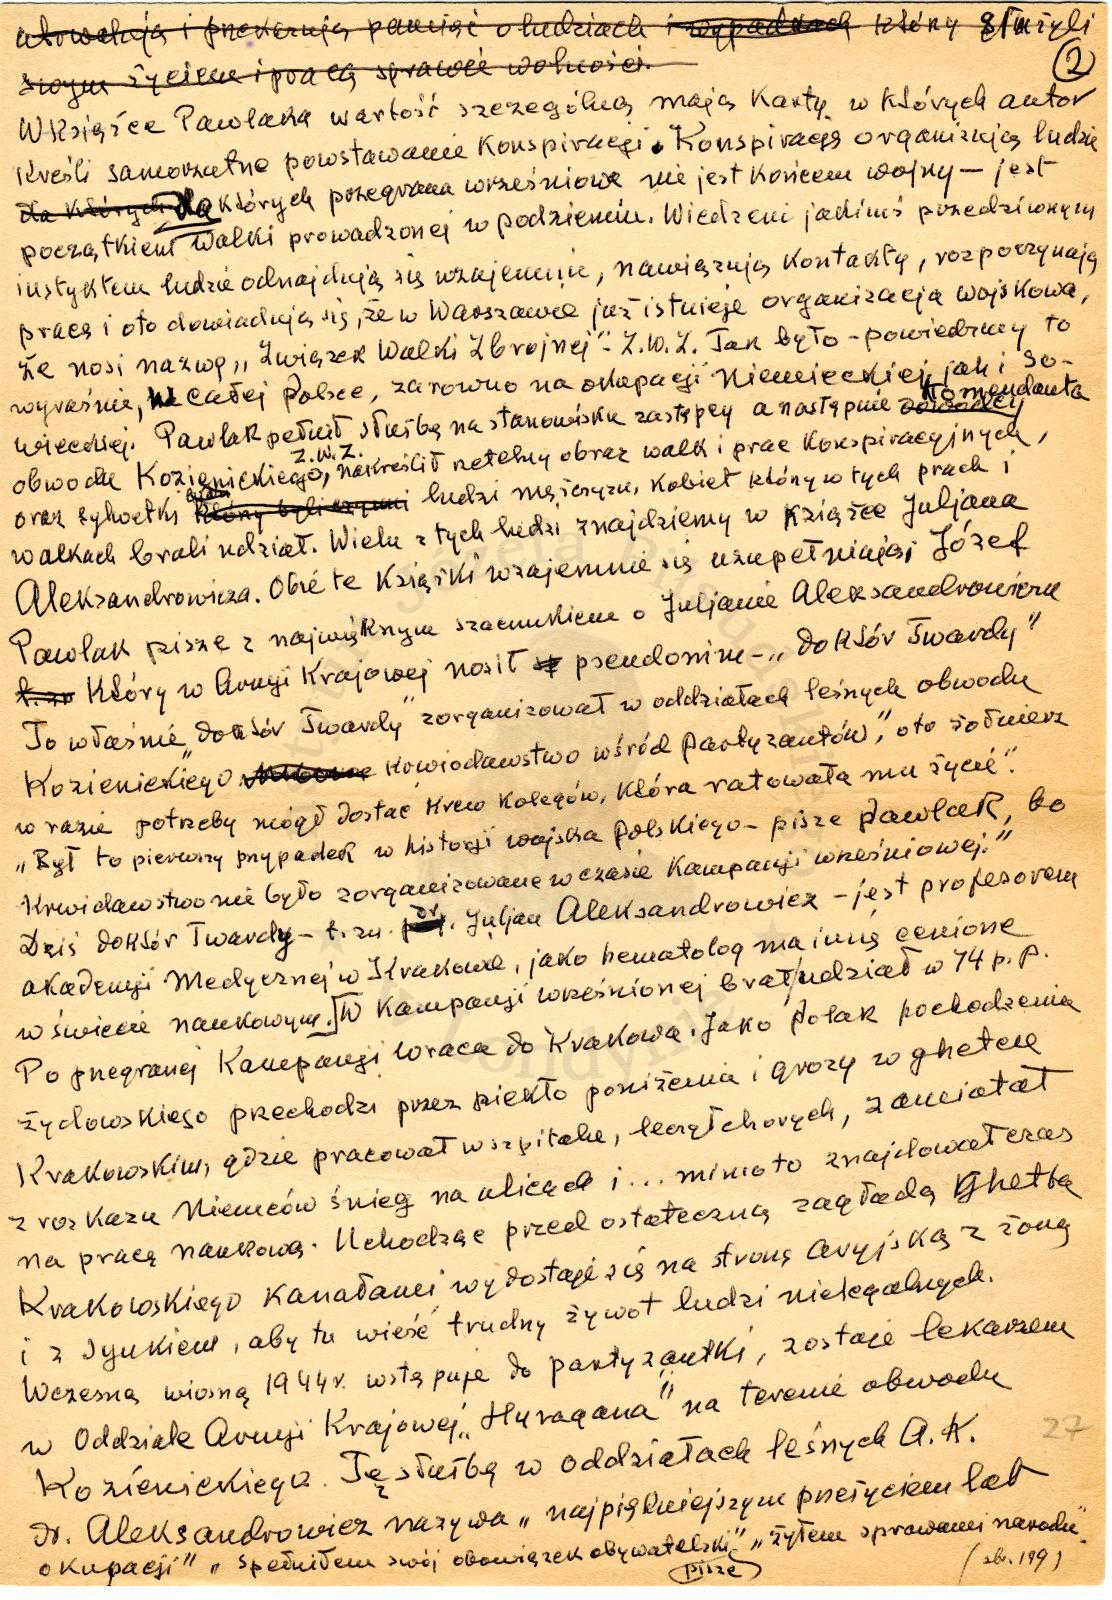 utrwalają i przekazują pamięć o ludziach i wypadkach którzy służyli
swym życiem i pracą sprawie wolności.
2
W książce Pawlaka wartość szczególną mają karty w których autor
kreśli samorzutne powstawanie konspiracji. Konspirację organizują ludzie
dla których dla których przegrana wrześniowa nie jest końcem wojny – jest
początkiem walki prowadzonej w podziemiu. Wiedzeni jakimś przedziwnym
instyktem ludzie odnajdują się wzajemnie, nawiązują kontakty, rozpoczynają
pracę i oto dowiadują się, że w Warszawie już istnieje organizacja wojskowa,
że nosi nazwę „Związek Walki Zbrojnej" – Z.W.Z. Tak było – powiedzmy to
wyraźnie, w całej Polsce, zarówno na okupacji Niemieckiej, jak i So-
wieckiej. Pawlak pełnił służbę na stanowisku zastępcy a następnie dowódcy Komendanta
obwodu Kozienickiego, Z.W.Z. nakreślił rzetelny obraz walk i prac konspiracyjnych,
oraz sylwetki którzy byli czynni ludzi mężczyzn, kobiet którzy w tych prach i
walkach brali udział. Wielu z tych ludzi znajdziemy w książce Juljana
Aleksandrowicza. Obie te książki wzajemnie się uzupełniają Józef
Pawlak pisze z największym szacunkiem o Juljanie Aleksandrowiczu
t.zn który w Armji Krajowej nosił pseudonim – „doktór Twardy"
To właśnie „doktór Twardy" zorganizował w oddziałach leśnych obwodu
Kozienickiego „krwiodawstwo wśród partyzantów", oto żołnierz
w razie potrzeby mógł dostać krew kolegów, która ratowała mu życie".
„Był to pierwszy przypadek w historji wojska Polskiego – pisze Pawlak, bo
krwidawstwo nie było zorganizowane w czasie kampanji wrześniowej."
Dziś doktór Twardy – t.zn. dr. Juljan Aleksandrowicz – jest profesorem
akademji Medycznej w Krakowie, jako hematolog ma imię cenione
w świecie naukowym. W kampanji wrześnionej brał udział w 74 p. p.
Po przegranej kampanji wraca do Krakowa. Jako Polak pochodzenia
żydowskiego przechodzi przez piekło poniżenia i grozy w ghetcie
Krakowskim, gdzie pracował w szpitalu, leczył chorych, zamiatał
z rozkazu Niemców śnieg na ulicach i... mimo to znajdował czas
na pracę naukową. Uchodząc przed ostateczną zagładą Ghetta
Krakowskiego kanałami wydostaje się na stronę aryjską z żoną
i z synkiem, aby tu wieść trudny żywot ludzi nielegalnych.
Wczesną wiosną 1944 r. wstępuje do partyzantki, zostaje lekarzem
w Oddziale Armji Krajowej „Huragana" na terenie obwodu
Kozienickiego. Tę służbę w oddziałach leśnych A.K.
dr. Aleksandrowicz nazywa „najpiękniejszym przeżyciem lat
okupacji" „spełniłem swój obowiązek obywatelski" pisze „żyłem sprawami narodu"
(str. 199)
27